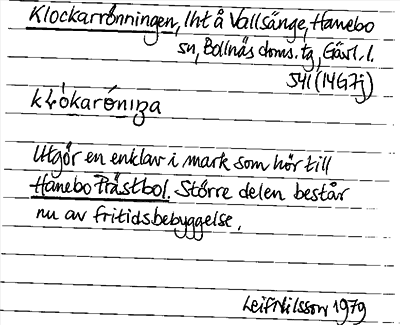 Klockarrönningen, lht å Vallsänge, Hanebo
sn, Bollnäs doms. tg, Gävl. l.
541 (14G7j)
kLòkaróniŋa
Utgör en enklav i mark som hör till
Hanebo Prästbol. Större delen består
nu av fritidsbebyggelse.
Leif Nilsson 1979